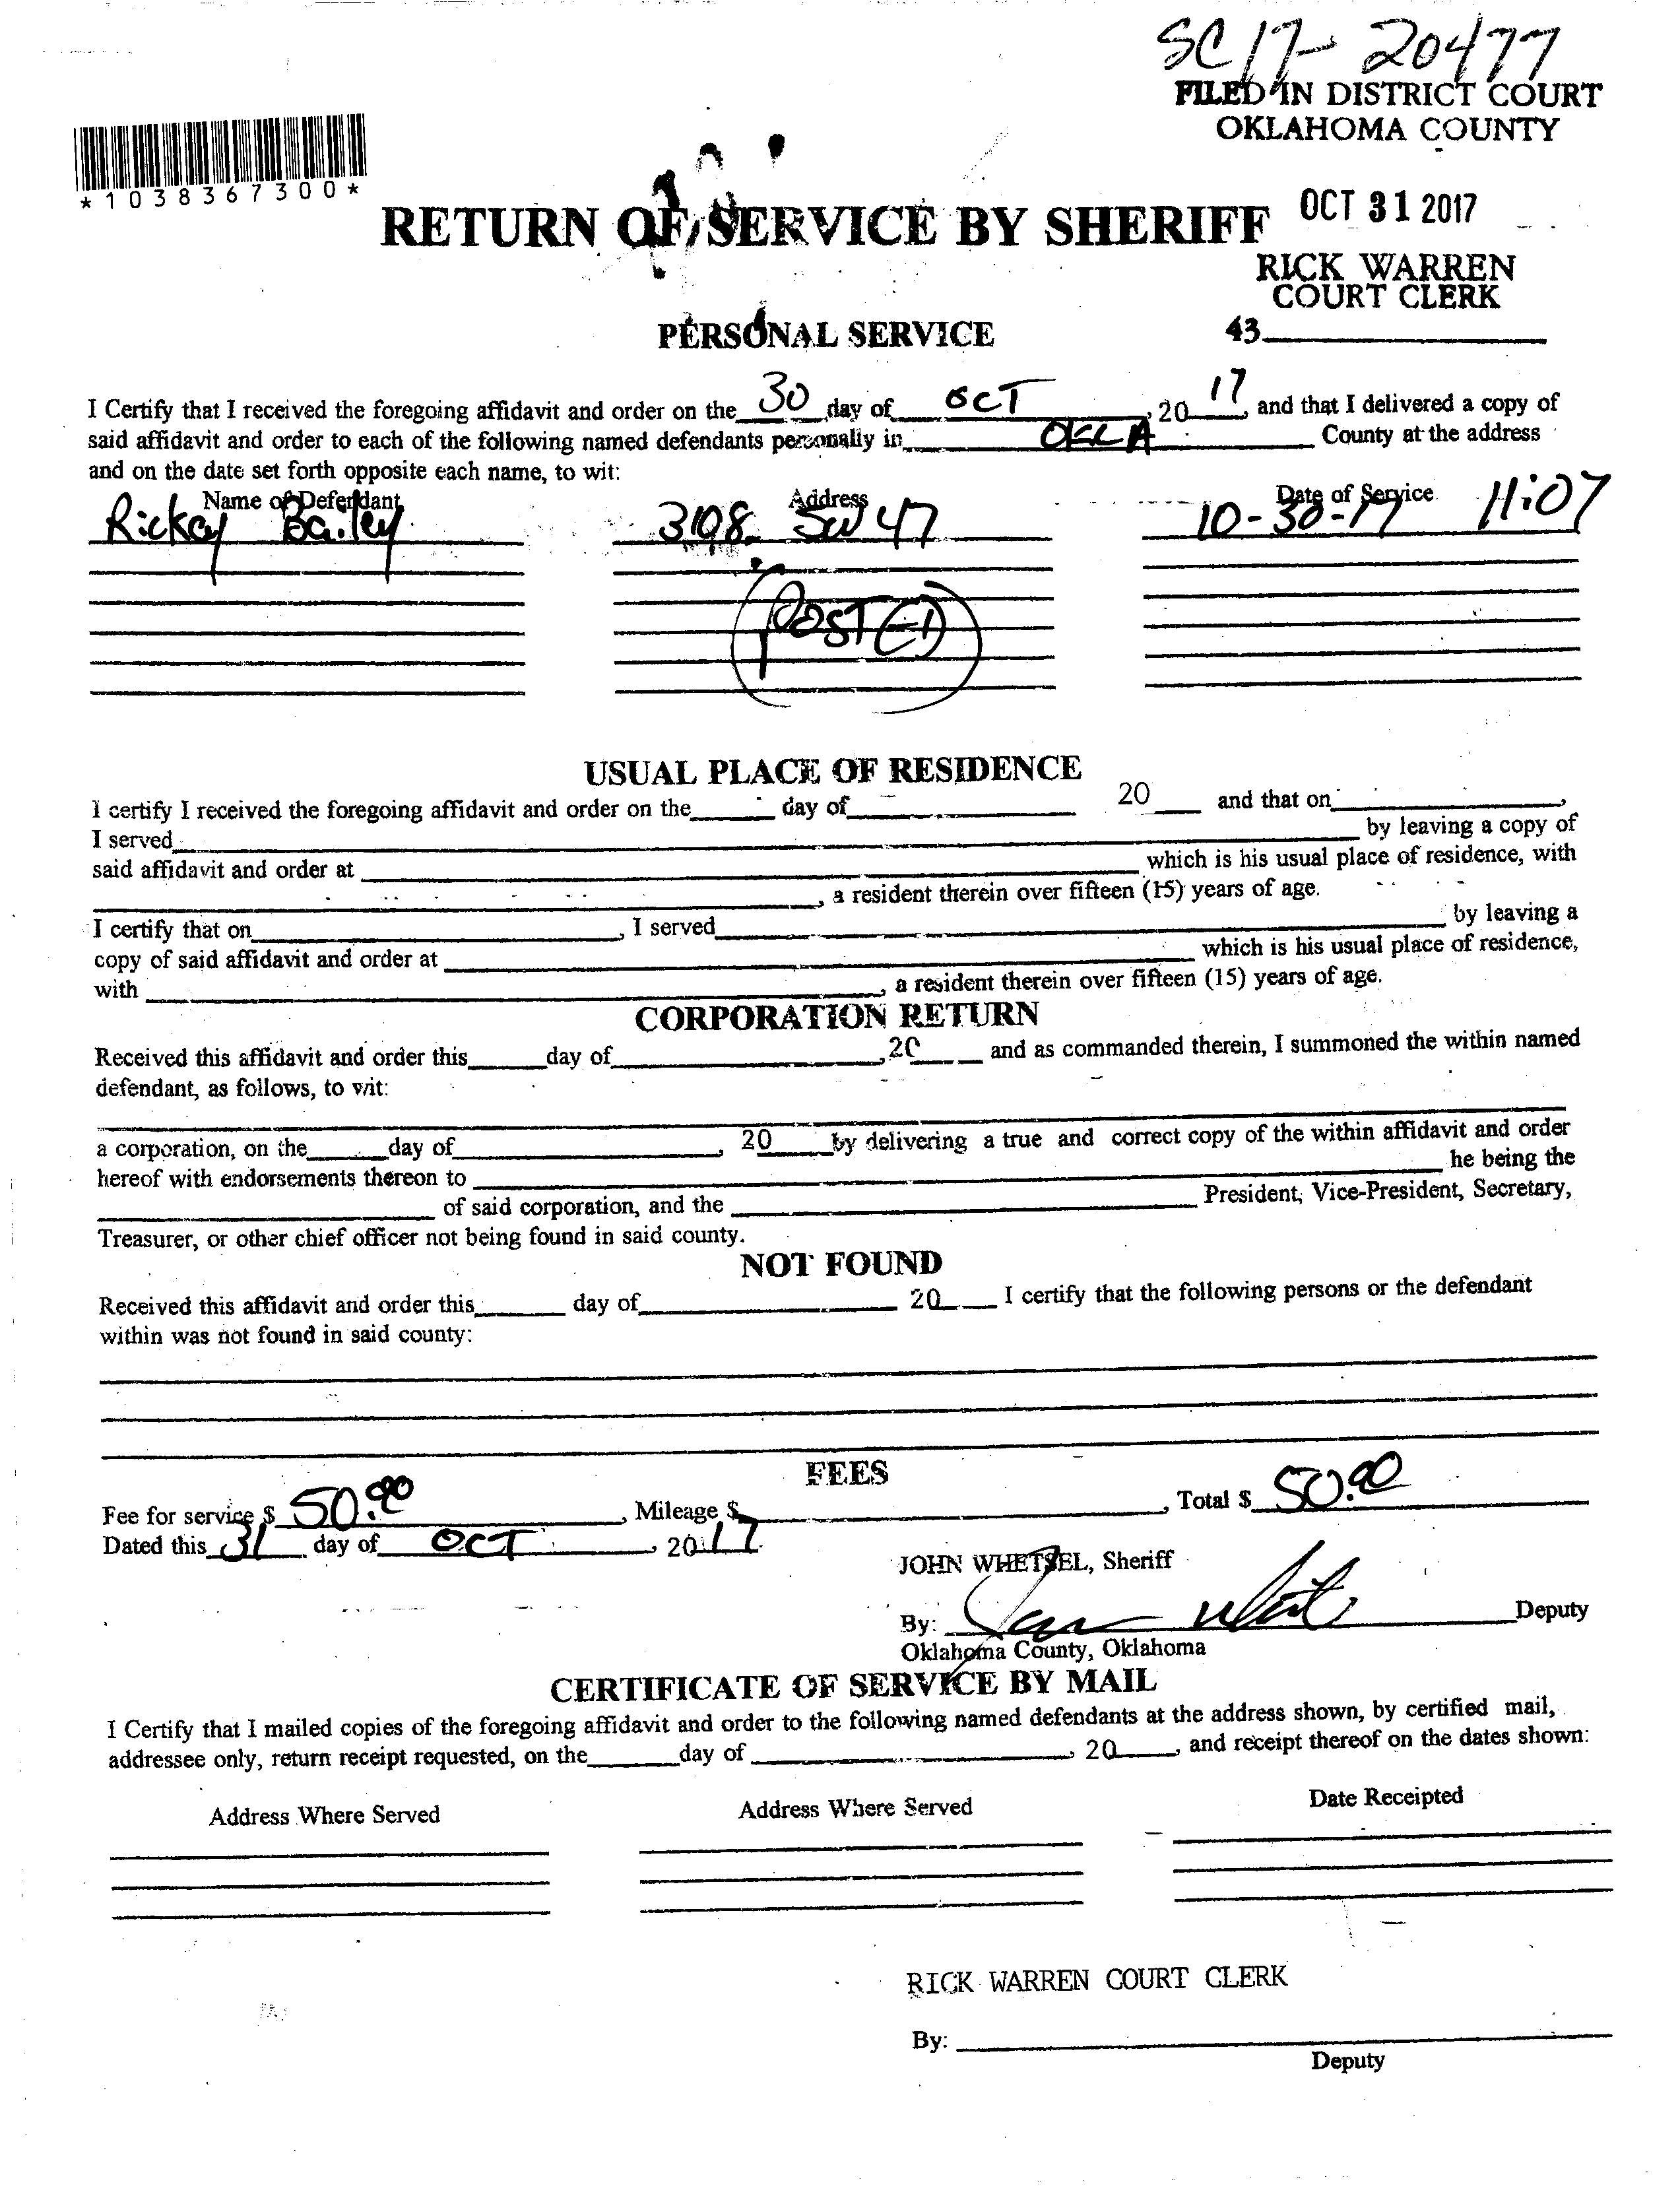 SC 17-20477
FILED IN DISTRICT COURT
OKLAHOMA COUNTY
*1038367300*
OCT 31 2017
RETURN OF SERVICE BY SHERIFF
RICK WARREN
COURT CLERK
43
PERSONAL SERVICE
I Certify that I received the foregoing affidavit and order on the 30 day of OCT, 20 17, and that I delivered a copy of
said affidavit and order to each of the following named defendants personally in OKLA County at the address
and on the date set forth opposite each name, to wit:
Name of Defendant Address Date of Service
Rickey Bailey 3108 SW 47 10-30-17 11:07
POSTED
USUAL PLACE OF RESIDENCE
I certify I received the foregoing affidavit and order on the day of 20 and that on ,
I served by leaving a copy of
said affidavit and order at which is his usual place of residence, with
, a resident therein over fifteen (15) years of age.
I certify that on , I served by leaving a
copy of said affidavit and order at which is his usual place of residence,
with , a resident therein over fifteen (15) years of age.
CORPORATION RETURN
Received this affidavit and order this day of , 20 and as commanded therein, I summoned the within named
defendant, as follows, to wit:
a corporation, on the day of , 20 by delivering a true and correct copy of the within affidavit and order
hereof with endorsements thereon to he being the
of said corporation, and the President, Vice-President, Secretary,
Treasurer, or other chief officer not being found in said county.
NOT FOUND
Received this affidavit and order this day of 20 I certify that the following persons or the defendant
within was not found in said county:
FEES
Fee for service $ 50.00, Mileage $ , Total $ 50.00
Dated this 31 day of OCT, 2017.
JOHN WHETSEL, Sheriff
By: Deputy
Oklahoma County, Oklahoma
CERTIFICATE OF SERVICE BY MAIL
I Certify that I mailed copies of the foregoing affidavit and order to the following named defendants at the address shown, by certified mail,
addressee only, return receipt requested, on the day of , 20 , and receipt thereof on the dates shown:
Address Where Served Address Where Served Date Receipted
RICK WARREN COURT CLERK
By:
Deputy